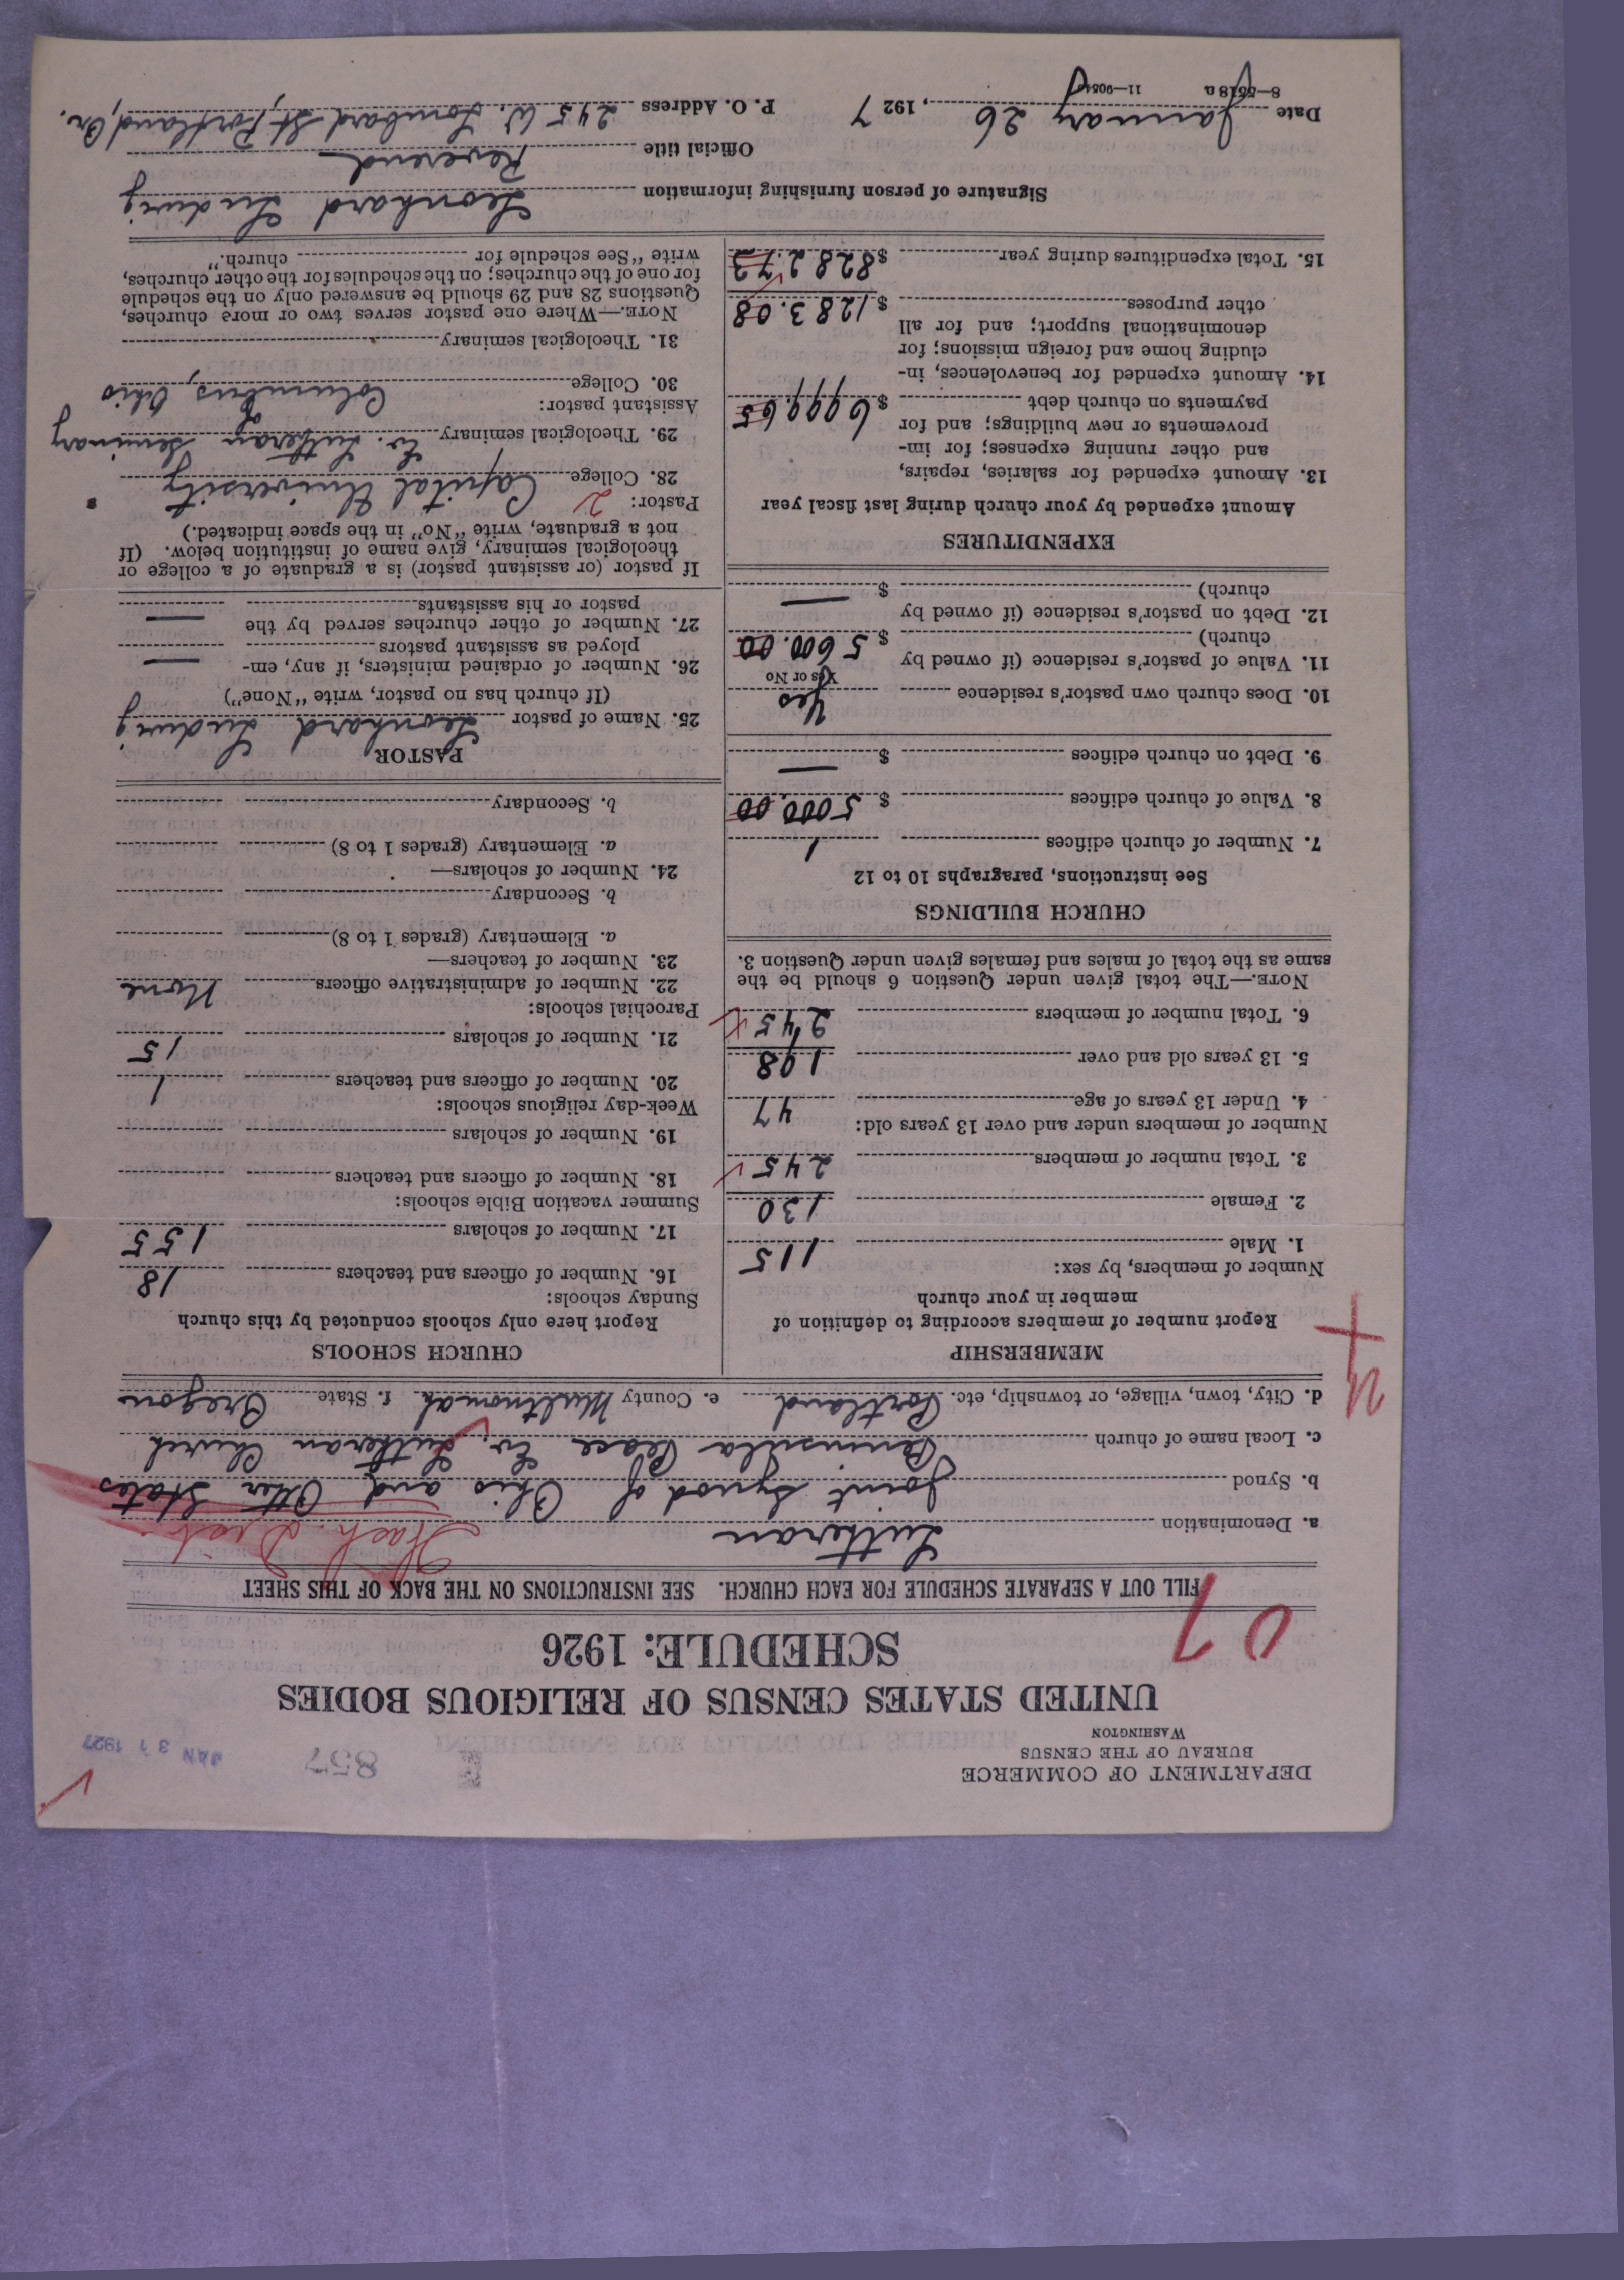 DEPARTMENT OF COMMERCE
BUREAU OF THE CENSUS
WASHINGTON
857
JAN 31 1927
UNITED STATES CENSUS OF RELIGIOUS BODIES
SCHEDULE: 1926
07
FILL OUT A SEPARATE SCHEDULE FOR EACH CHURCH. SEE INSTRUCTIONS ON THE BACK OF THIS SHEET
a. Denomination Lutheran Wash. Dist.
b. Synod Joint Synod of Ohio and Other States
c. Local name of church Peninsula Peace Ev. Lutheran Church
d. City, town, village, or township, etc. Portland e. County Multnomah f. State Oregon
MEMBERSHIP
Report number of members according to definition of
member in your church
Number of members, by sex:
1. Male 115
2. Female 130
3. Total number of members 245
Number of members under and over 13 years old:
4. Under 13 years of age 47
5. 13 years old and over 198
6. Total number of members 245
NOTE.—The total given under Question 6 should be the
same as the total of males and females given under Question 3.
CHURCH BUILDINGS
See instructions, paragraphs 10 to 12
7. Number of church edifices 1
8. Value of church edifices $ 5000.00
9. Debt on church edifices $ —
10. Does church own pastor's residence Yes
Yes or No
11. Value of pastor's residence (if owned by
church) $ 5600.00
12. Debt on pastor's residence (if owned by
church) $ —
EXPENDITURES
Amount expended by your church during last fiscal year
13. Amount expended for salaries, repairs,
and other running expenses; for im-
provements or new buildings; and for
payments on church debt $ 6999.65
14. Amount expended for benevolences, in-
cluding home and foreign missions; for
denominational support; and for all
other purposes $ 1283.08
15. Total expenditures during year $ 8282.73
CHURCH SCHOOLS
Report here only schools conducted by this church
Sunday schools:
16. Number of officers and teachers 18
17. Number of scholars 155
Summer vacation Bible schools:
18. Number of officers and teachers
19. Number of scholars
Week-day religious schools:
20. Number of officers and teachers 1
21. Number of scholars 15
Parochial schools:
22. Number of administrative officers None
23. Number of teachers—
a. Elementary (grades 1 to 8)
b. Secondary
24. Number of scholars—
a. Elementary (grades 1 to 8)
b. Secondary
PASTOR
25. Name of pastor Leonhard Ludwig
(If church has no pastor, write "None")
26. Number of ordained ministers, if any, em-
ployed as assistant pastors —
27. Number of other churches served by the
pastor or his assistants —
If pastor (or assistant pastor) is a graduate of a college or
theological seminary, give name of institution below. (If
not a graduate, write "No" in the space indicated.)
Pastor: 2
28. College Capital University
29. Theological seminary Ev. Lutheran Seminary
of
Assistant pastor: Columbus, Ohio
30. College
31. Theological seminary
NOTE.—Where one pastor serves two or more churches,
Questions 28 and 29 should be answered only on the schedule
for one of the churches; on the schedules for the other churches,
write "See schedule for church."
Signature of person furnishing information Leonhard Ludwig
Official title Reverend
Date January 26, 1927 P. O. Address 245 W. Lombard St., Portland, Or.
8—5518a 11—9054